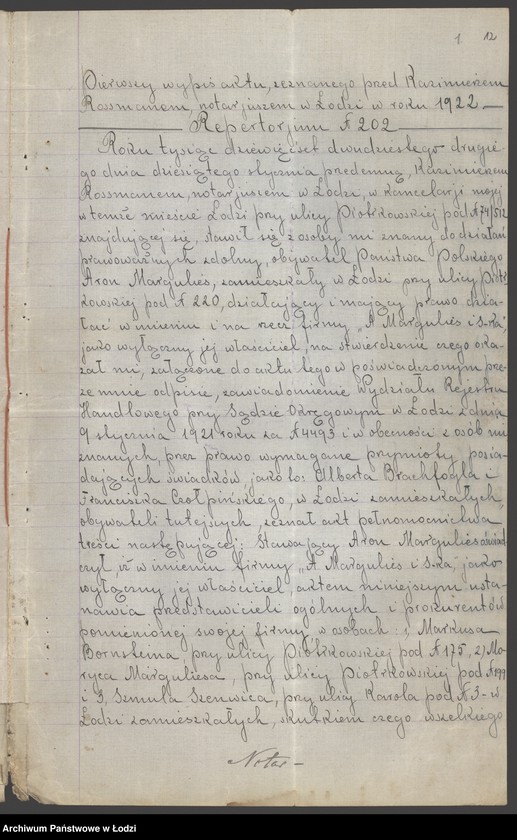 1. 12
Pierwszy wypis aktu, zeznanego pred Kazimierzem
Rossmanem, notarjuszem w Łodzi w roku 1922 —
Repertorjum № 202
Roku tysiąc dziewięćset dwudziestego drugie-
go dnia dziesiątego stycznia predemną, Kazimierzem
Rossmanem, notarjuszem w Łodzi, w kancelarji mojej
w temże mieście Łodzi przy ulicy Piotrkowskiej pod № 74/512
znajdującej się, stawił się z osoby mi znany do działań
prawoważnych zdolny, obywatel Państwa Polskiego
Aron Margulies, zamieszkały w Łodzi przy ulicy Piotr-
kowskiej pod № 220, działający i mający prawo dzia-
łać w imieniu i na rzecz firmy „A Margulies i S-ka",
jako wyłączny jej właściciel, na stwierdzenie czego oka-
zał mi, załączone do aktu tego w poświadczonym prze-
ze mnie odpisie, zawiadomienie Wydziału Rejestru
Handlowego przy Sądzie Okręgowym w Łodzi z dnia
9 stycznia 1921 roku za № 4493 i w obecności z osób mi
znanych, przez prawo wymagane przymioty posia-
dających świadków, jako to: Alberta Brachfogla i
Franciszka Czołpińskiego, w Łodzi zamieszkałych
obywateli tutejszych, zeznał akt pełnomocnictwa
treści następującej: Stawający Aron Margulies oświad-
czył, iż w imieniu firmy „A Margulies i S-ka, jako
wyłączny jej właściciel, aktem niniejszym usta-
nawia przedstawicieli ogólnych i prokurentów
pomienionej swojej firmy w osobach: 1, Markusa
Bornsteina, przy ulicy Piotrkowskiej pod № 175, 2) Mo-
ryca Marguliesa, przy ulicy Piotrkowskiej pod № 199
i 3, Szmula Szenwica, przy ulicy Karola pod № 3 – w
Łodzi zamieszkałych, skutkiem czego wszelkiego
Notar –
Archiwum Państwowe w Łodzi